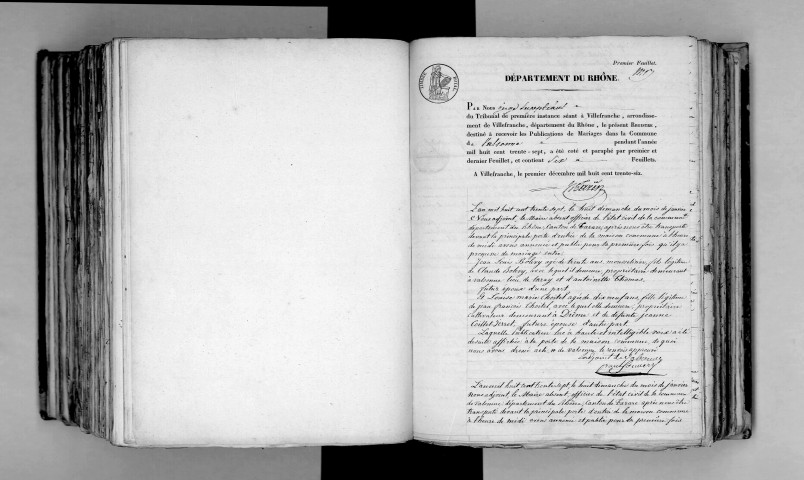 Premier Feuillet.
DÉPARTEMENT DU RHÔNE.
PAR NOUS juge suppléant
du Tribunal de première instance séant à Villefranche, arrondisse-
ment de Villefranche, département du Rhône, le présent REGISTRE,
destiné à recevoir les Publications de Mariages dans la Commune
de Valsonne pendant l'année
mil huit cent trente-sept, a été coté et paraphé par premier et
dernier Feuillet, et contient six Feuillets.
A Villefranche, le premier décembre mil huit cent trente-six.
L'an mil huit cent trente sept, le huit dimanche du mois de janvier
Nous adjoint, le Maire absent officier de l'état civil de la commune
département du Rhône, Canton de Tarare après nous être transporté
devant la principale porte d'entrée de la maison commune à l'heure
de midi avons annoncé et publié pour la première fois qu'il y a
promesse de mariage entre
Jean Louis agé de trente ans, fils légitime
de Claude avec lequel il demeure, propriétaire demeurant
à valsonne et d'antoinette Thomas
futur époux d'une part
Et Louise marie agée de dix neuf ans, fille légitime
de jean françois avec lequel elle demeure, propriétaire
cultivateur demeurant à Dième et de défunte jeanne
future épouse d'autre part
Laquelle publication lue à haute et intelligible voix a été
de suite affichée à la porte de la maison commune, de quoi
nous avons dressé acte
L'an mil huit cent trente sept, le huit dimanche du mois de janvier
Nous adjoint, le Maire absent, officier de l'état civil de la commune
de valsonne département du Rhône, Canton de Tarare après nous être
transporté devant la principale porte d'entrée de la maison commune
à l'heure de midi avons annoncé et publié pour la première fois